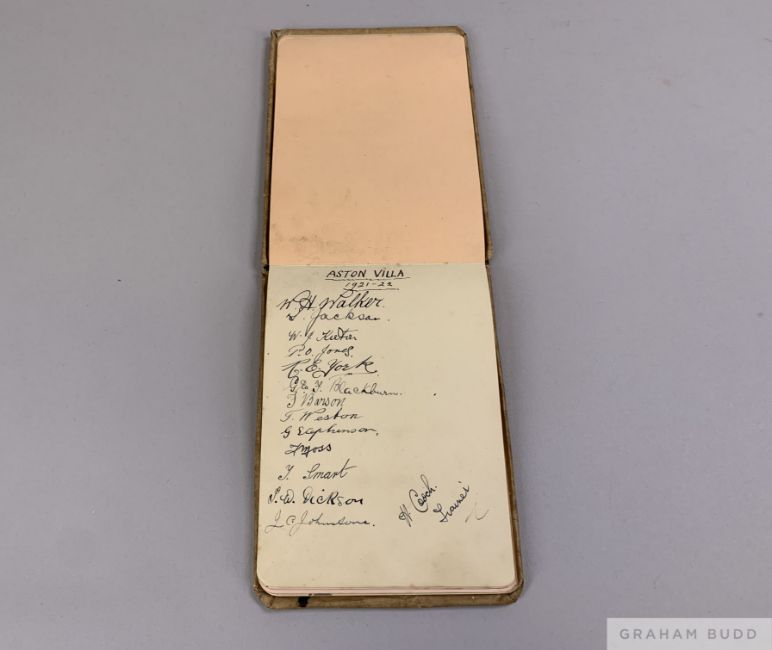 ASTON VILLA
1921-22
W H Walker.
T. Jackson.
W. J. Kirton
P. O. Jones.
R. E. York
G. F. Blackburn.
F Barson
T. Weston
G Stephenson.
F Moss
T. Smart
I. W. Dickson
J C Johnstone.
H Cooch.
Trainer
GRAHAM BUDD